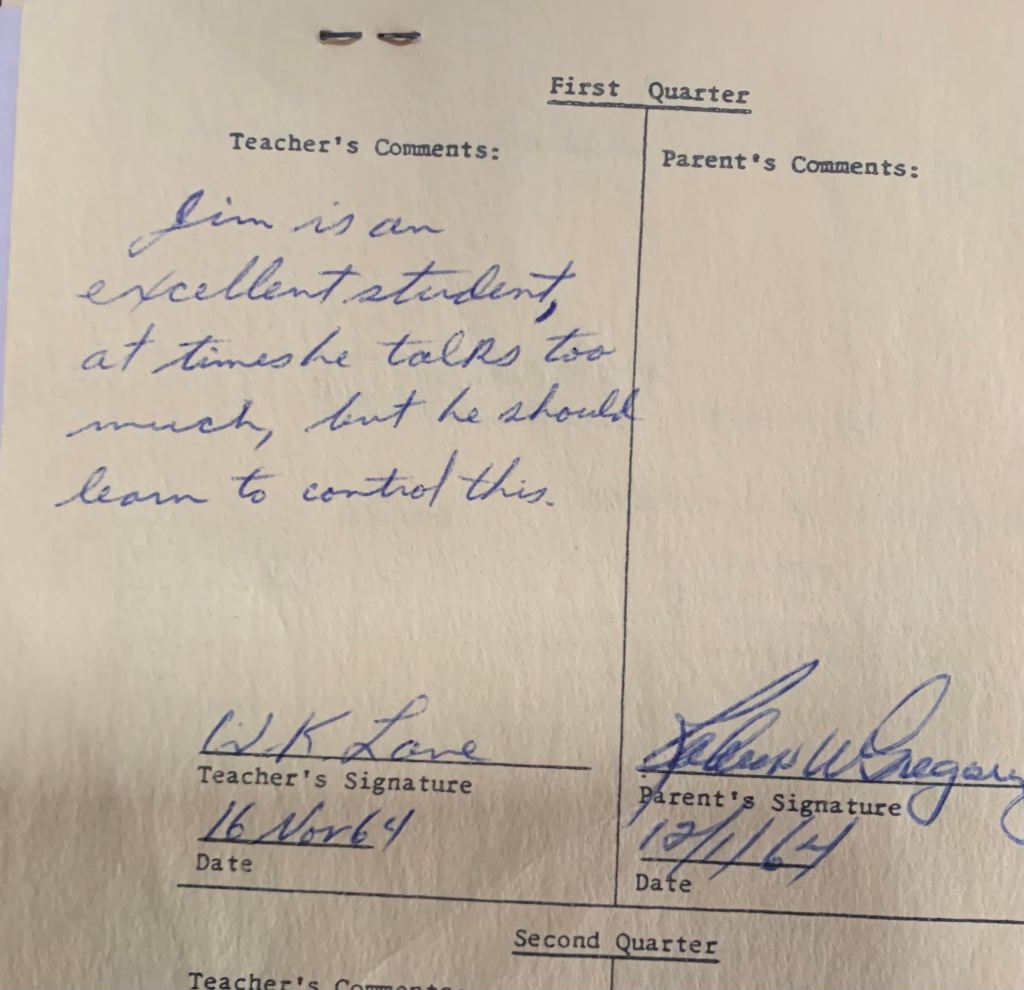 First Quarter
Teacher's Comments:
Parent's Comments:
Jim is an
excellent student,
at times he talks too
much, but he should
learn to control this.
W K Lane
Teacher's Signature
16 Nov 64
Date
W Gregory
Parent's Signature
12/1/64
Date
Second Quarter
Teacher's Comments